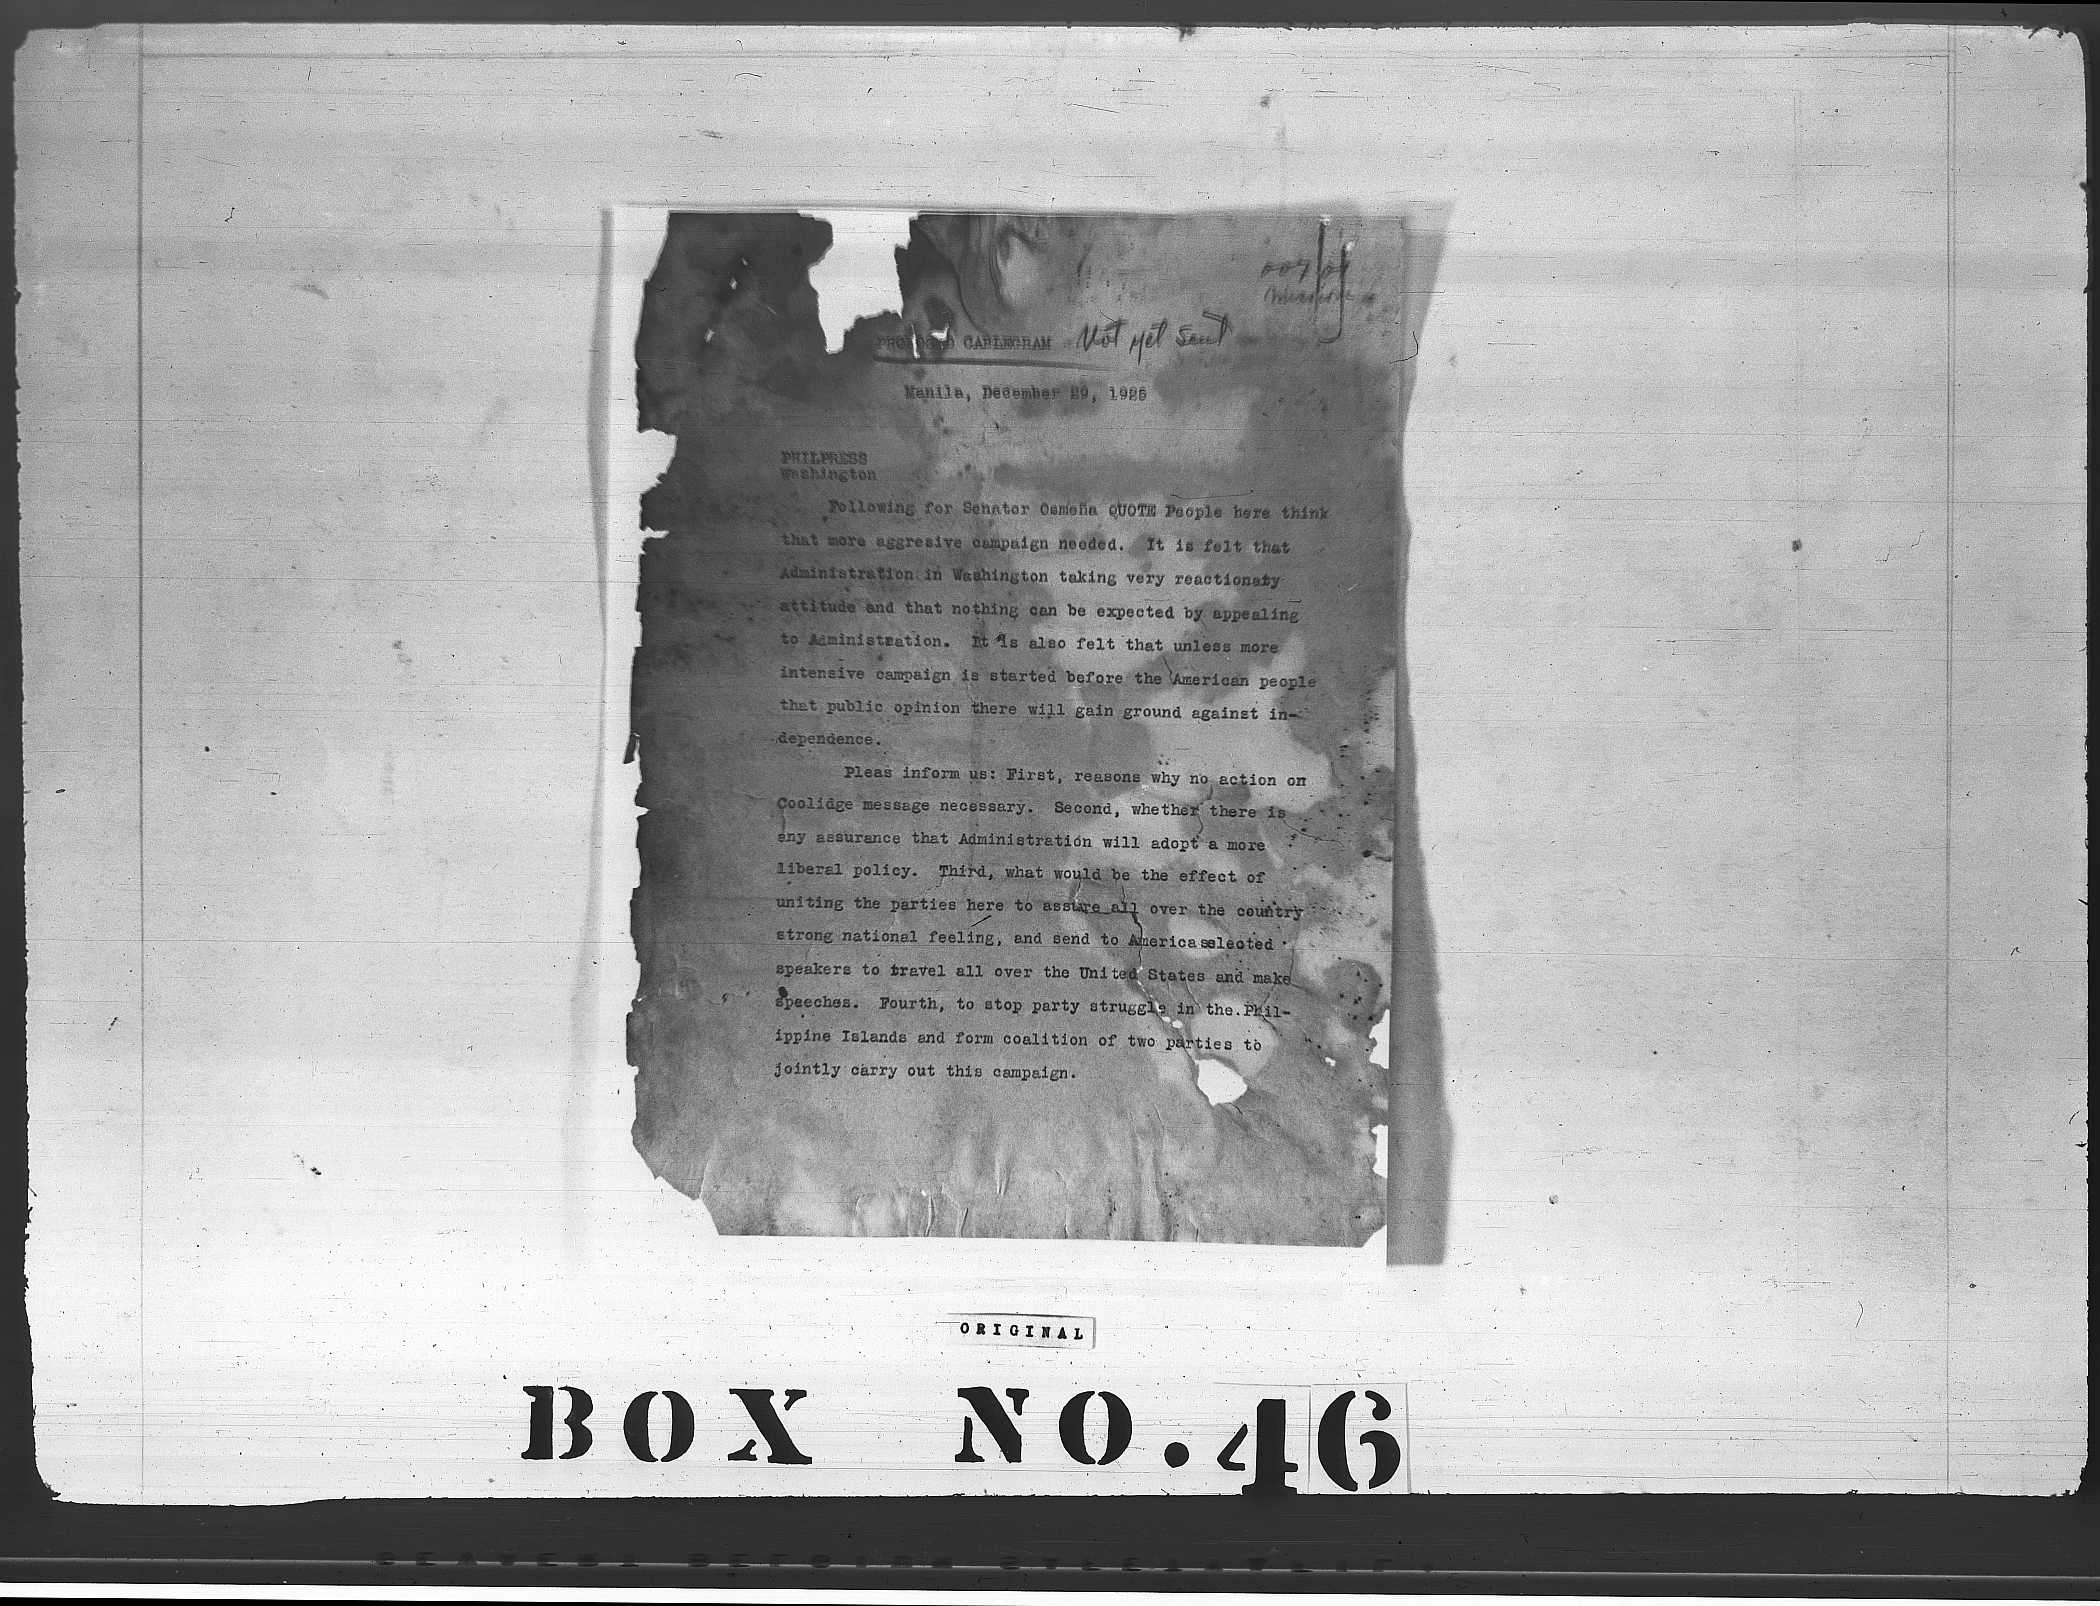 Not yet sent
PROPOSED CABLEGRAM
Manila, December 29, 1925
PHILPRESS
Washington
Following for Senator Osmeña QUOTE People here think
that more aggresive campaign needed. It is felt that
Administration in Washington taking very reactionaty
attitude and that nothing can be expected by appealing
to Administration. It is also felt that unless more
intensive campaign is started before the American people
that public opinion there will gain ground against in-
dependence.
Pleas inform us: First, reasons why no action on
Coolidge message necessary. Second, whether there is
any assurance that Administration will adopt a more
liberal policy. Third, what would be the effect of
uniting the parties here to assure all over the country
strong national feeling, and send to America selected
speakers to travel all over the United States and make
speeches. Fourth, to stop party struggle in the Phil-
ippine Islands and form coalition of two parties to
jointly carry out this campaign.
ORIGINAL
BOX NO. 46